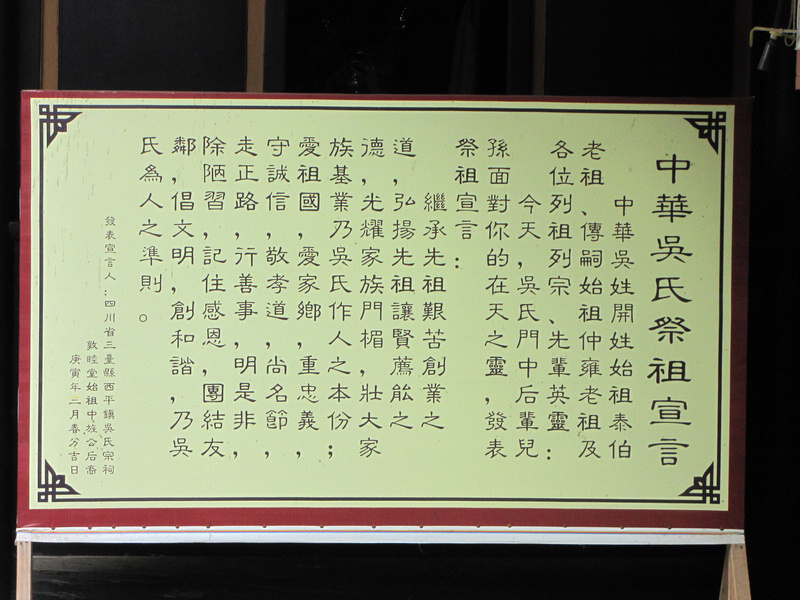 中華吳氏祭祖宣言
中華吳姓開姓始祖泰伯
老祖、傳嗣始祖仲雍老祖及
各位列祖列宗、先輩英靈：
今天，吳氏門中后輩兒
孫面對你的在天之靈，發表
祭祖宣言：
繼承先祖艱苦創業之
道，弘揚先祖讓賢薦能之
德，光耀家族門楣，壯大家
族基業乃吳氏作人之本份；
愛祖國，愛家鄉，重忠義，
守誠信，敬孝道，尚名節，
走正路，行善事，明是非，
除陋習，記住感恩，團結友
鄰，倡文明，創和諧，乃吳
氏為人之準則。
發表宣言人：四川省三臺縣西平鎮吳氏宗祠
敦睦堂始祖中旌公后裔
庚寅年二月春分吉日